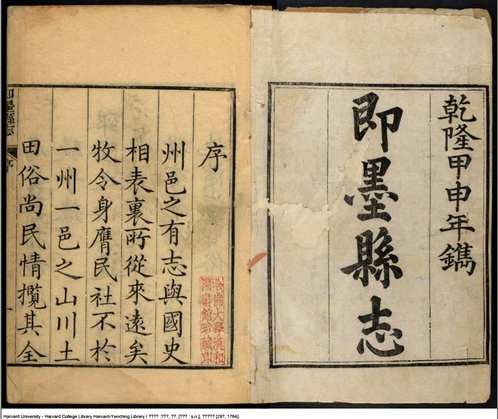 乾隆甲申年鐫
即墨縣志
序
州邑之有志與國史
相表裏所從來遠矣
牧令身膺民社不於
一州一邑之山川土
田俗尚民情攬其全
Harvard University - Harvard College Library Harvard-Yenching Library / ???? : ???, ??. [??? : s.n.], ????? [29?, 1764].